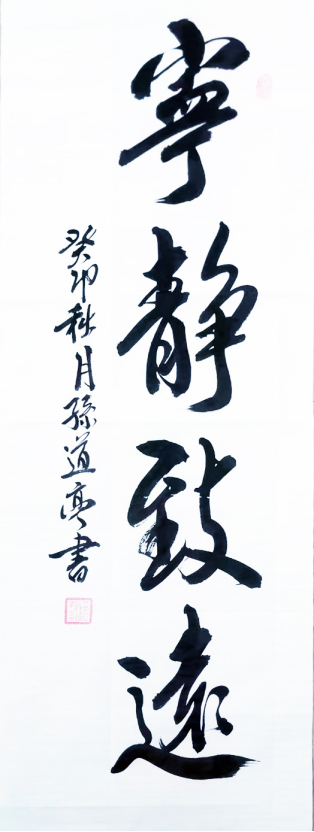 寧靜致遠
癸卯秋月孫道亭書